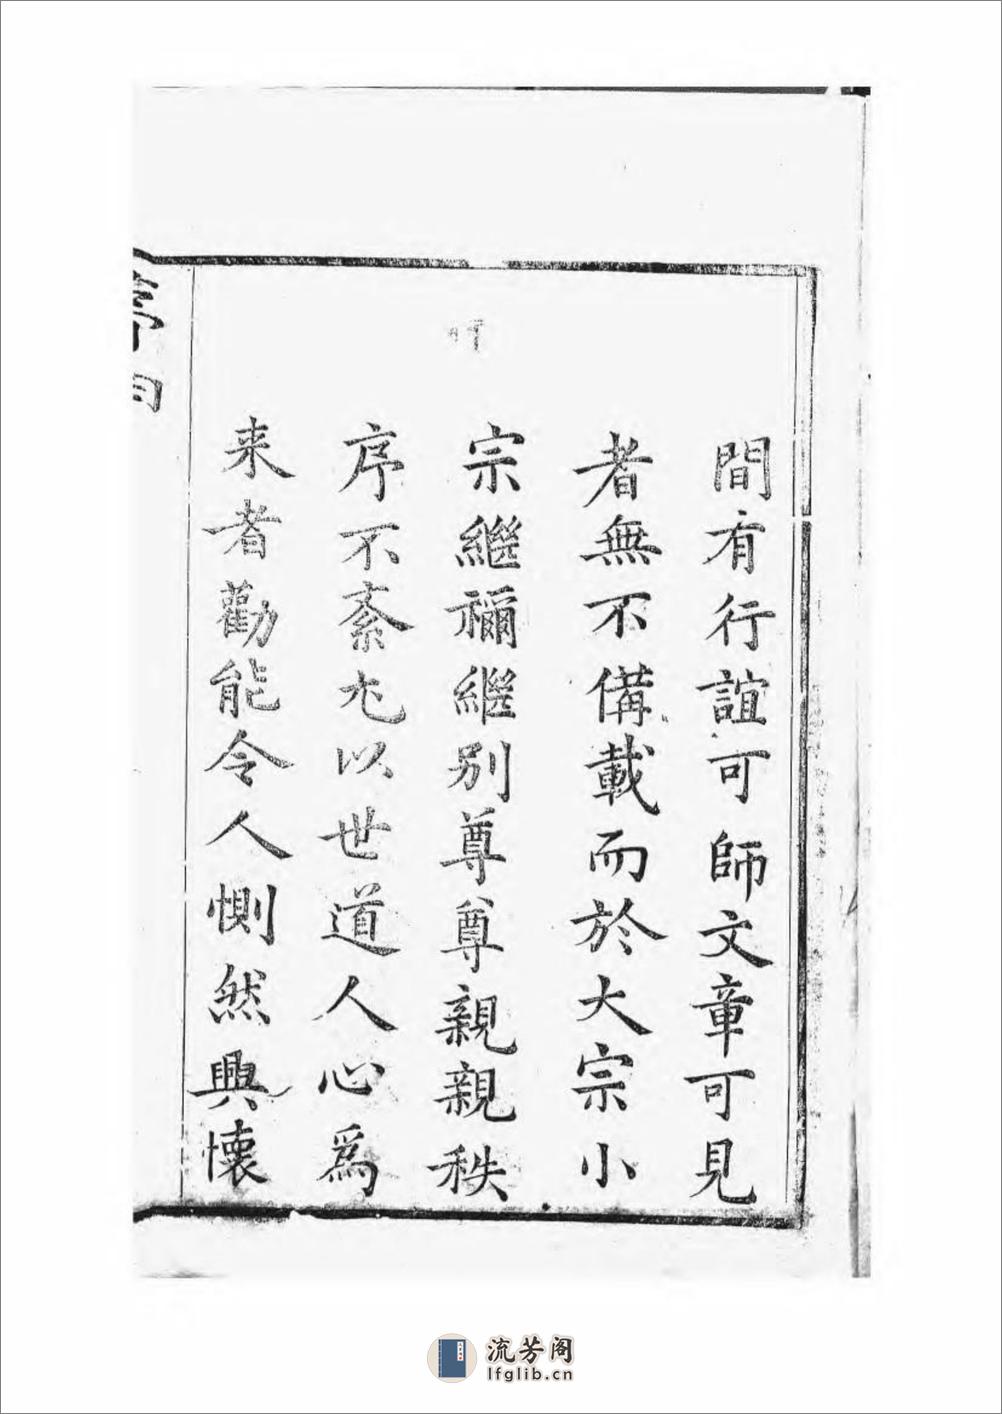 間有行誼可師文章可見
者無不備載而於大宗小
宗繼禰繼別尊尊親親秩
序不紊尤以世道人心為
来者勸能令人惻然興懷
流芳阁
lfglib.cn